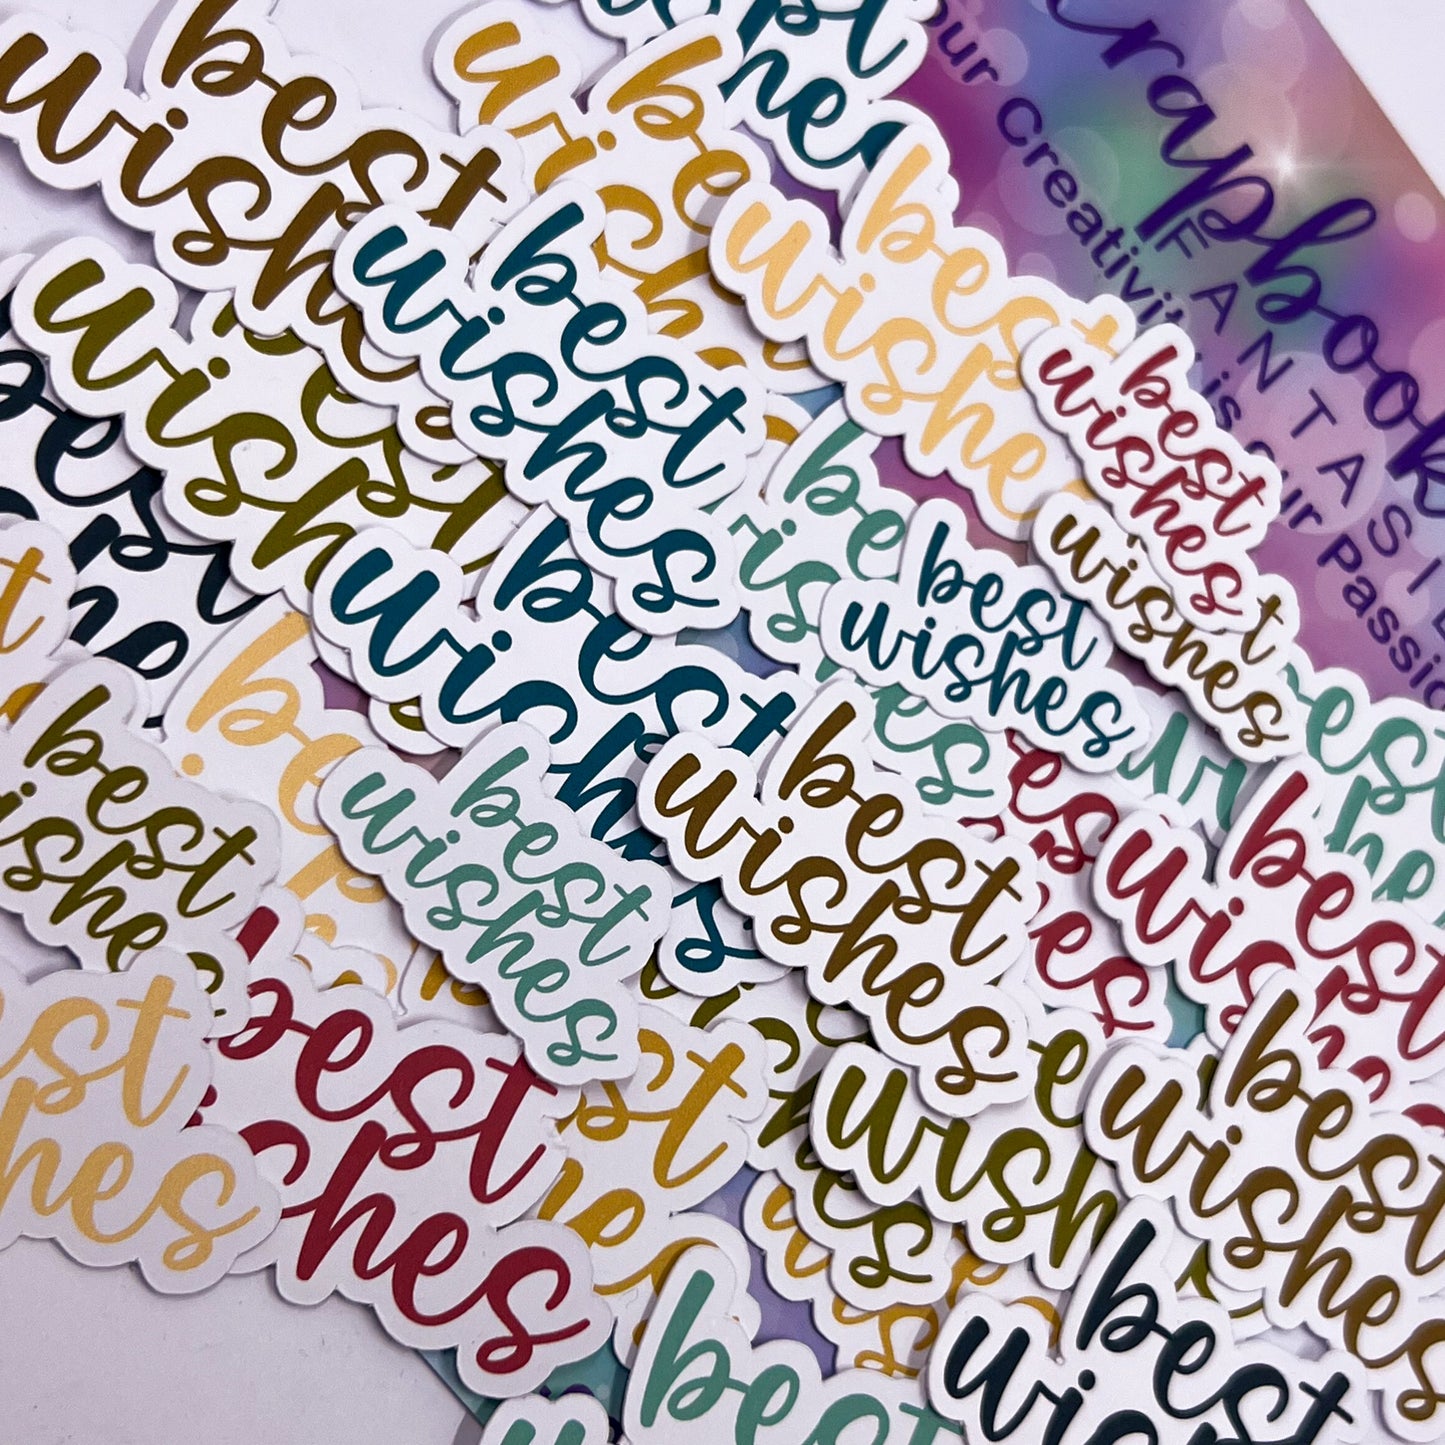 best
wishes
best
wishes
best
wishes
best
wishes
best
wishes
best
wishes
best
wishes
best
wishes
best
wishes
best
wishes
best
wishes
best
wishes
best
wishes
best
wishes
best
wishes
best
wishes
best
wishes
best
wishes
best
wishes
FANTASIE
Creativity is our Passion